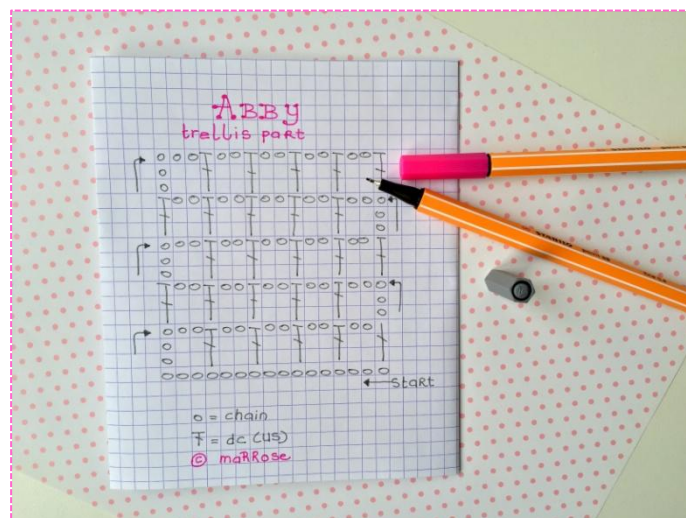 ABBY
trellis part
START
o = chain
Ŧ = dc (US)
© maRRose